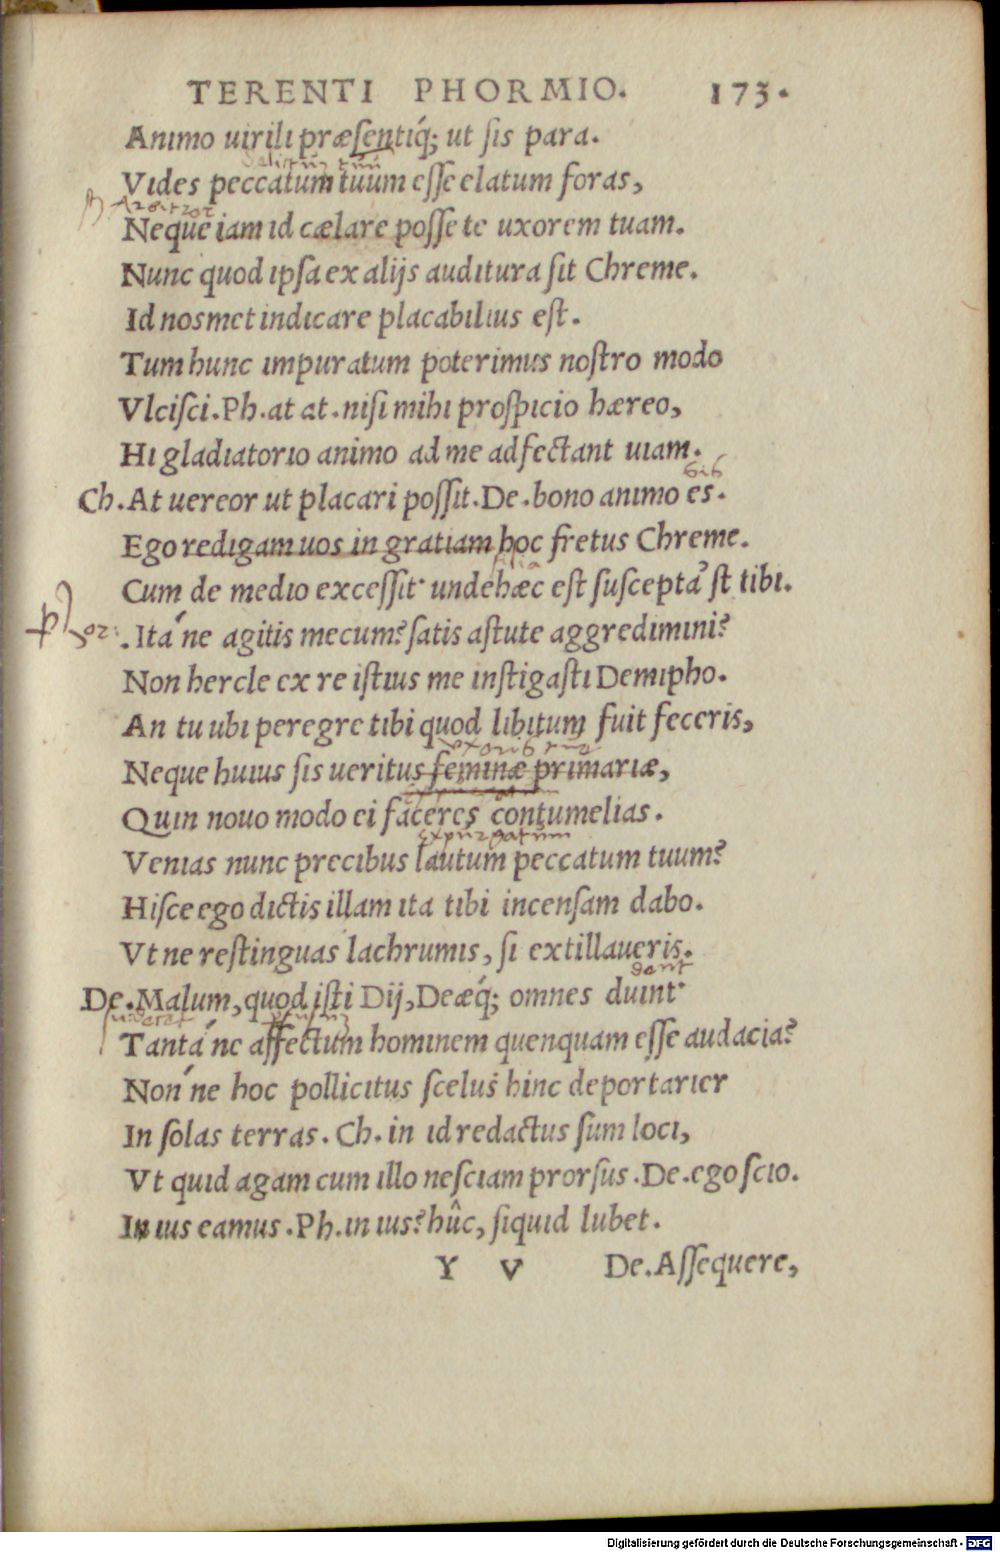 TERENTI PHORMIO. 173.
Animo uirili præsentiq́; ut sis para.
delictũ tuũ
Vides peccatum tuum esse elatum foras,
Neque iam id cælare posse te uxorem tuam.
Nunc quod ipsa ex alijs auditura sit Chreme.
Id nosmet indicare placabilius est.
Tum hunc impuratum poterimus nostro modo
Vlcisci. Ph. at at. nisi mihi prospicio hæreo,
Hi gladiatorio animo ad me adfectant uiam.
sis
Ch. At uereor ut placari possit. De. bono animo es.
Ego redigam uos in gratiam hoc fretus Chreme.
filia
Cum de medio excessit unde hæc est suscepta ̓st tibi.
Phor:
. Itá ne agitis mecum? satis astute aggredimini?
Non hercle ex re istius me instigasti Demipho.
An tu ubi peregre tibi quod libitum fuit feceris,
Neque huius sis ueritus feminæ primariæ,
Quin nouo modo ei faceres contumelias.
expurgatum
Venias nunc precibus lautum peccatum tuum?
Hisce ego dictis illam ita tibi incensam dabo.
Vt ne restinguas lachrumis, si extillaueris.
dent
De. Malum, quod isti Dij, Deæq́; omnes duint
Tantá ne affectum hominem quenquam esse audacia?
Non ́ne hoc pollicitus scelus hinc deportarier
In solas terras. Ch. in id redactus sum loci,
Vt quid agam cum illo nesciam prorsus. De. ego scio.
In ius eamus. Ph. in ius? hûc, siquid lubet.
Y V De. Assequere,
Digitalisierung gefördert durch die Deutsche Forschungsgemeinschaft - DFG